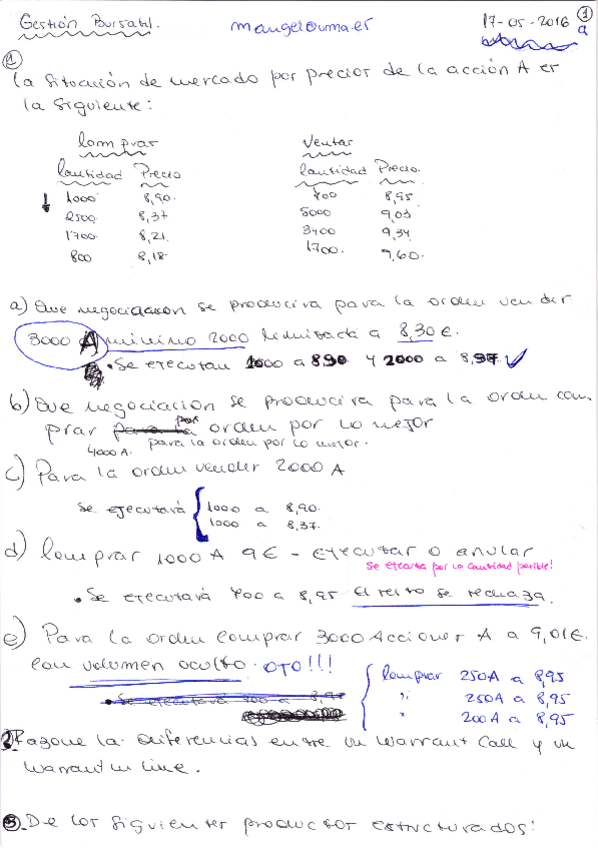 Gestión Bursatil. mangel@uma.es 17-05-2016 1a
1
La situación de mercado por precios de la acción A es
la siguiente:
Comprar Ventas
Cantidad Precio Cantidad Precio.
1000 8,90. 700 8,95
2500 8,37 5000 9,03
1700 8,21. 3400 9,34
800 8,18. 1700. 9,60.
a) Que negociacion se producira para la orden vender
3000 A minimo 2000 limitada a 8,30€.
• Se ejecutan 1000 a 890 y 2000 a 8,37.
b) Que negociacion se producira para la orden com
prar por orden por lo mejor
4000 A. para la orden por lo mejor.
c) Para la orden vender 2000 A
Se ejecutará 1000 a 8,90.
1000 a 8,37.
d) Comprar 1000 A 9€ - ejecutar o anular
Se ejecuta por la cantidad posible!
• Se ejecutará 700 a 8,95 El resto se rechaza.
e) Para la orden comprar 3000 Acciones A a 9,01€.
con volumen oculto. OJO!!!
Comprar 250A a 8,95
" 250A a 8,95
" 200A a 8,95
• Se ejecutará 700 a 8,95
2. Razone la diferencias entre un warrant call y un
warrant in line.
3. De los siguientes productos estructurados: